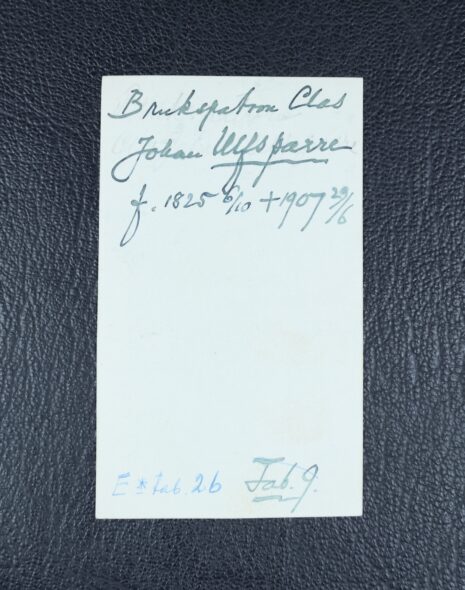 Brukspatron Clas
Johan Ulfsparre
f. 1825 6/10 + 1907 29/6
E * tab. 26 Tab. 9.